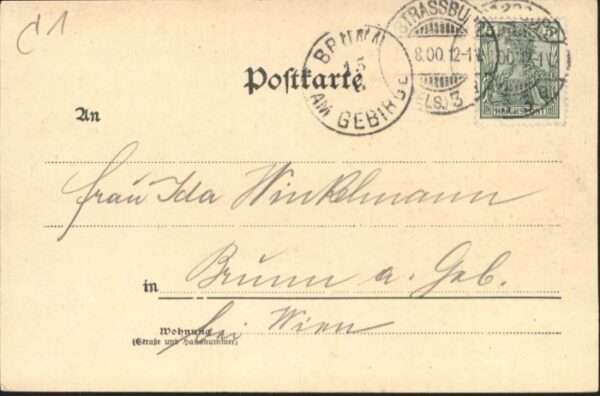 d1
STRASSBU
8.00.12-1V
(ELS.) 3
BRUNN
15
AM GEBIRGE
Postkarte.
An
Frau Ida Winkelmann
in Brunn a. Geb.
Wohnung bei Wien
(Straße und Hausnummer)